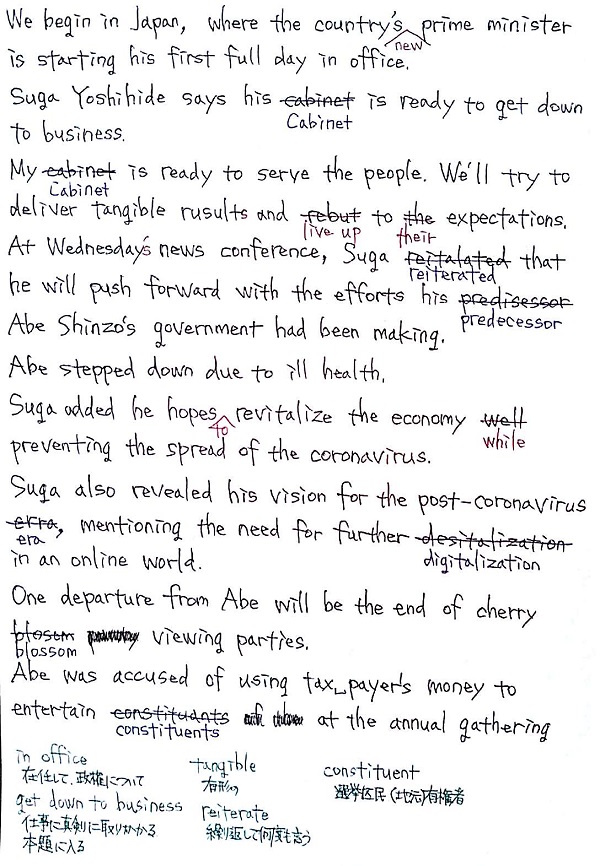 We begin in Japan, where the country's prime minister
new
is starting his first full day in office.
Suga Yoshihide says his cabinet is ready to get down
Cabinet
to business.
My cabinet is ready to serve the people. We'll try to
Cabinet
deliver tangible rusults and rebut to the expectations.
live up their
At Wednesday's news conference, Suga reitalated that
reiterated
he will push forward with the efforts his predisessor
predecessor
Abe Shinzo's government had been making.
Abe stepped down due to ill health.
Suga added he hopes revitalize the economy well
to while
preventing the spread of the coronavirus.
Suga also revealed his vision for the post-coronavirus
erra, mentioning the need for further desitalization
era digitalization
in an online world.
One departure from Abe will be the end of cherry
blosom viewing parties.
blossom
Abe was accused of using tax payer's money to
entertain constituants at the annual gathering
constituents
in office tangible constituent
在任して、政権について 有形の 選挙区民(地元)有権者
get down to business reiterate
仕事に真剣に取りかかる 繰り返して何度も言う
本題に入る